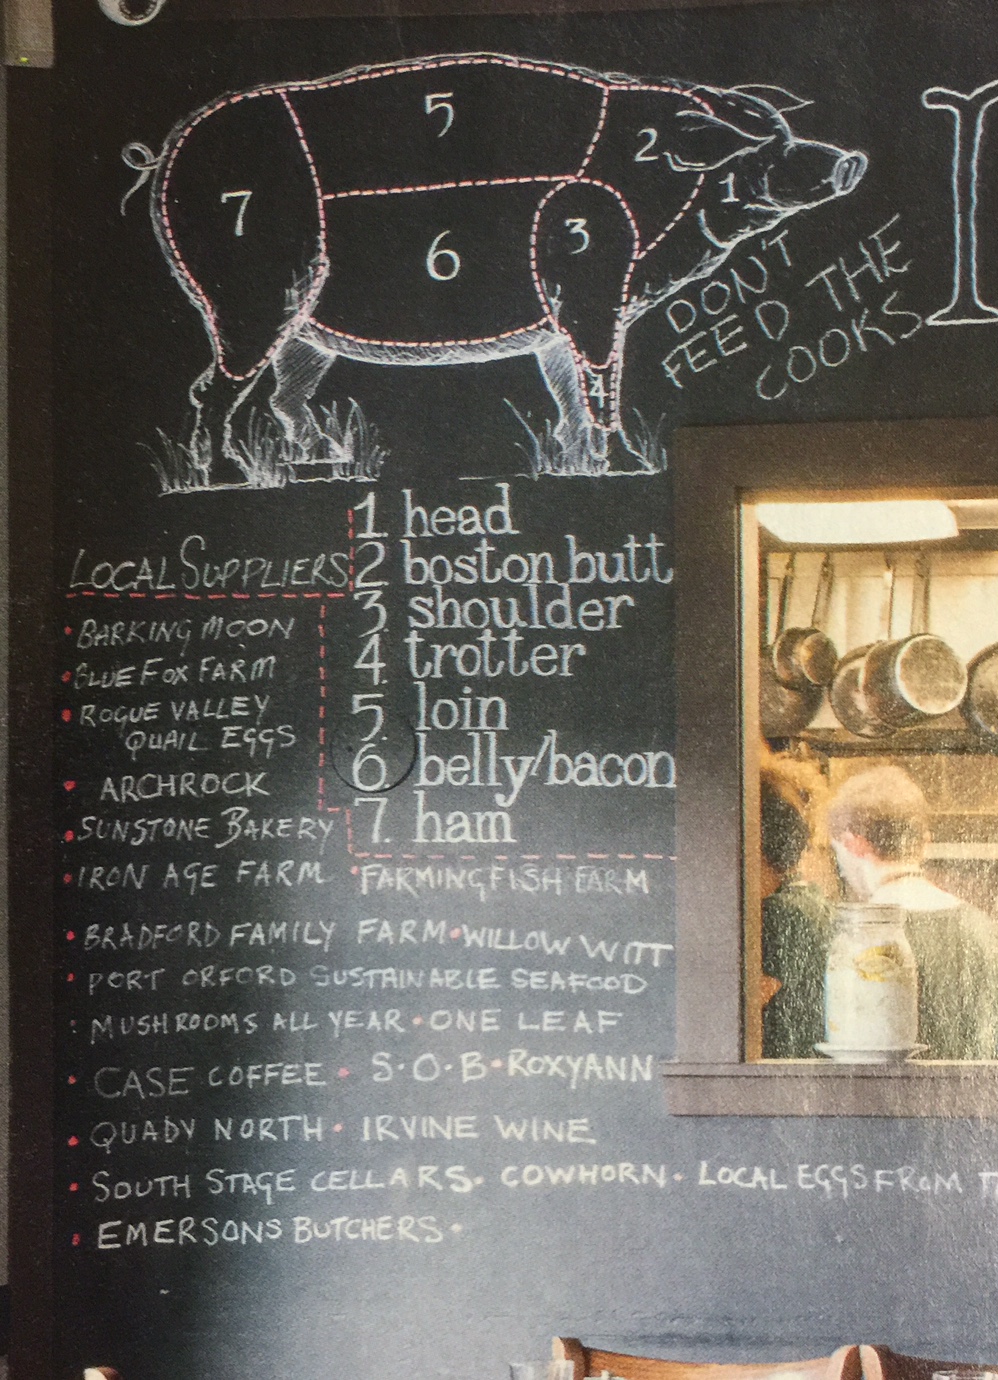 5
2
1
7
3
6
4
DON'T
FEED THE
COOKS
1 head
2 boston butt
3. shoulder
4. trotter
5. loin
6. belly/bacon
7. ham
LOCAL SUPPLIERS
• BARKING MOON
• BLUE FOX FARM
• ROGUE VALLEY
QUAIL EGGS
• ARCHROCK
• SUNSTONE BAKERY
• IRON AGE FARM • FARMINGFISH FARM
• BRADFORD FAMILY FARM • WILLOW WITT
• PORT ORFORD SUSTAINABLE SEAFOOD
: MUSHROOMS ALL YEAR • ONE LEAF
• CASE COFFEE • S.O.B • ROXYANN
• QUADY NORTH • IRVINE WINE
• SOUTH STAGE CELLARS • COWHORN • LOCAL EGGS FROM
• EMERSONS BUTCHERS •